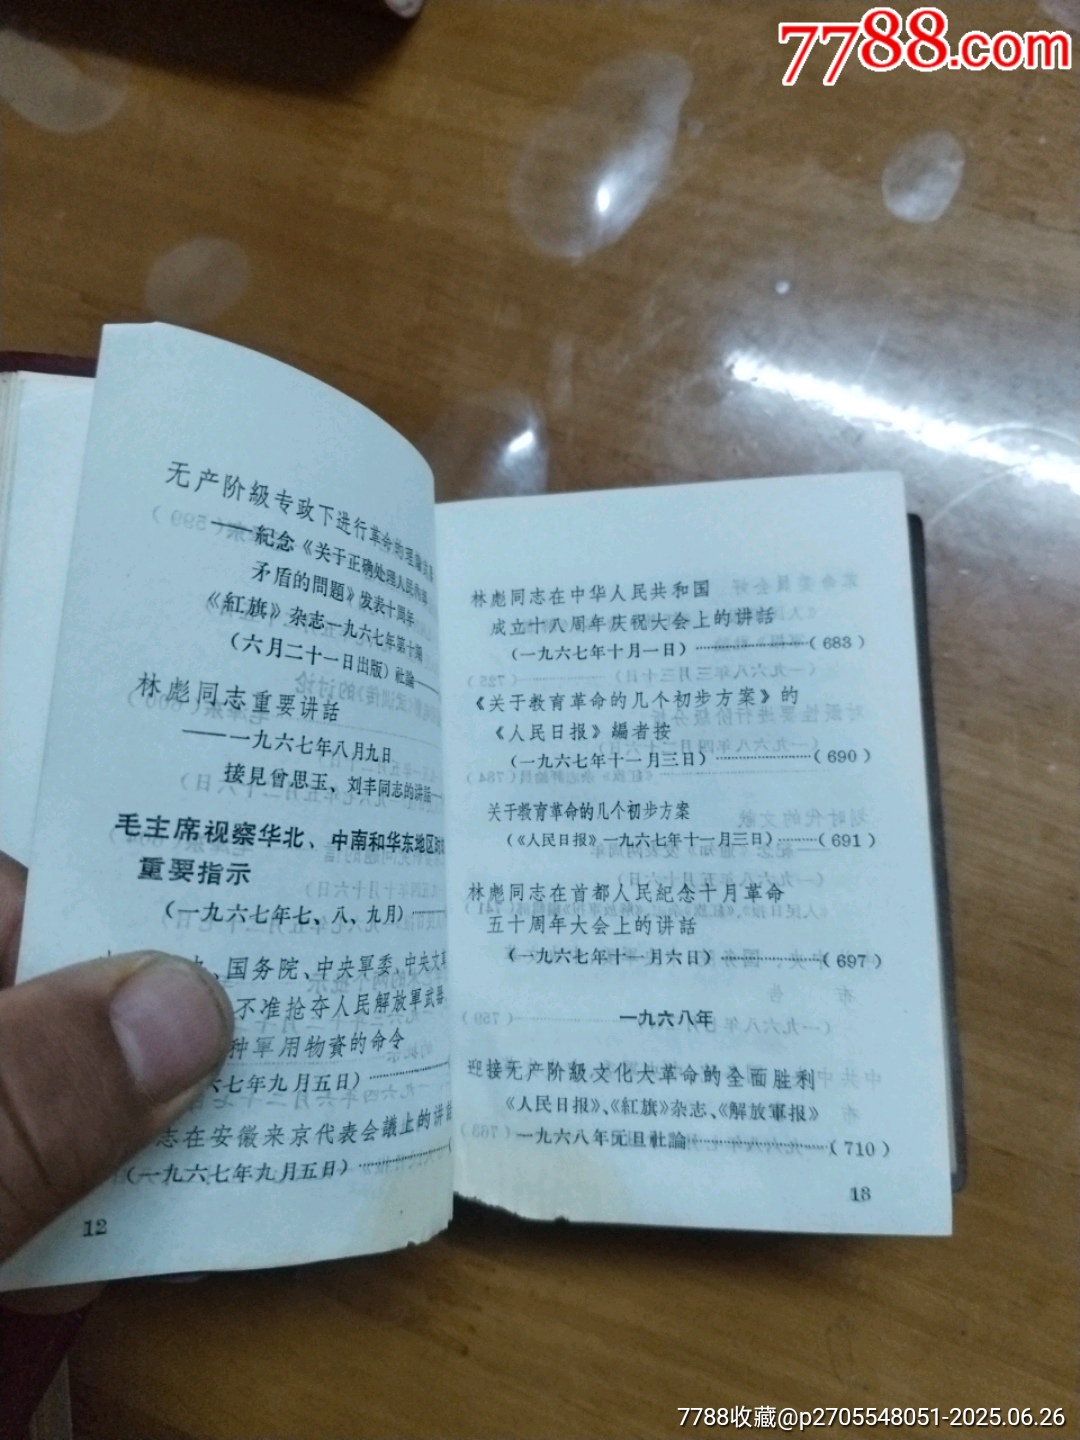 7788.com
无产阶級专政下进行革命的理論
——紀念《关于正确处理人民内部
矛盾的問題》发表十周年
《紅旗》杂志一九六七年第十期
(六月二十一日出版) 社論
林彪同志重要讲話
——一九六七年八月九日
接見曾思玉、刘丰同志的讲話
毛主席视察华北、中南和华东地区
重要指示
(一九六七年七、八、九月)
、国务院、中央軍委、中央文革
不准抢夺人民解放軍武器
种軍用物資的命令
六七年九月五日)
志在安徽来京代表会議上的讲話
(一九六七年九月五日)
12
林彪同志在中华人民共和国
成立十八周年庆祝大会上的讲話
(一九六七年十月一日)……………(683)
《关于教育革命的几个初步方案》的
《人民日报》編者按
(一九六七年十一月三日)…………(690)
关于教育革命的几个初步方案
(《人民日报》一九六七年十一月三日)………(691)
林彪同志在首都人民紀念十月革命
五十周年大会上的讲話
(一九六七年十一月六日)…………(697)
一九六八年
迎接无产阶級文化大革命的全面胜利
《人民日报》、《紅旗》杂志、《解放軍报》
一九六八年元旦社論……………(710)
13
7788收藏@p2705548051-2025.06.26